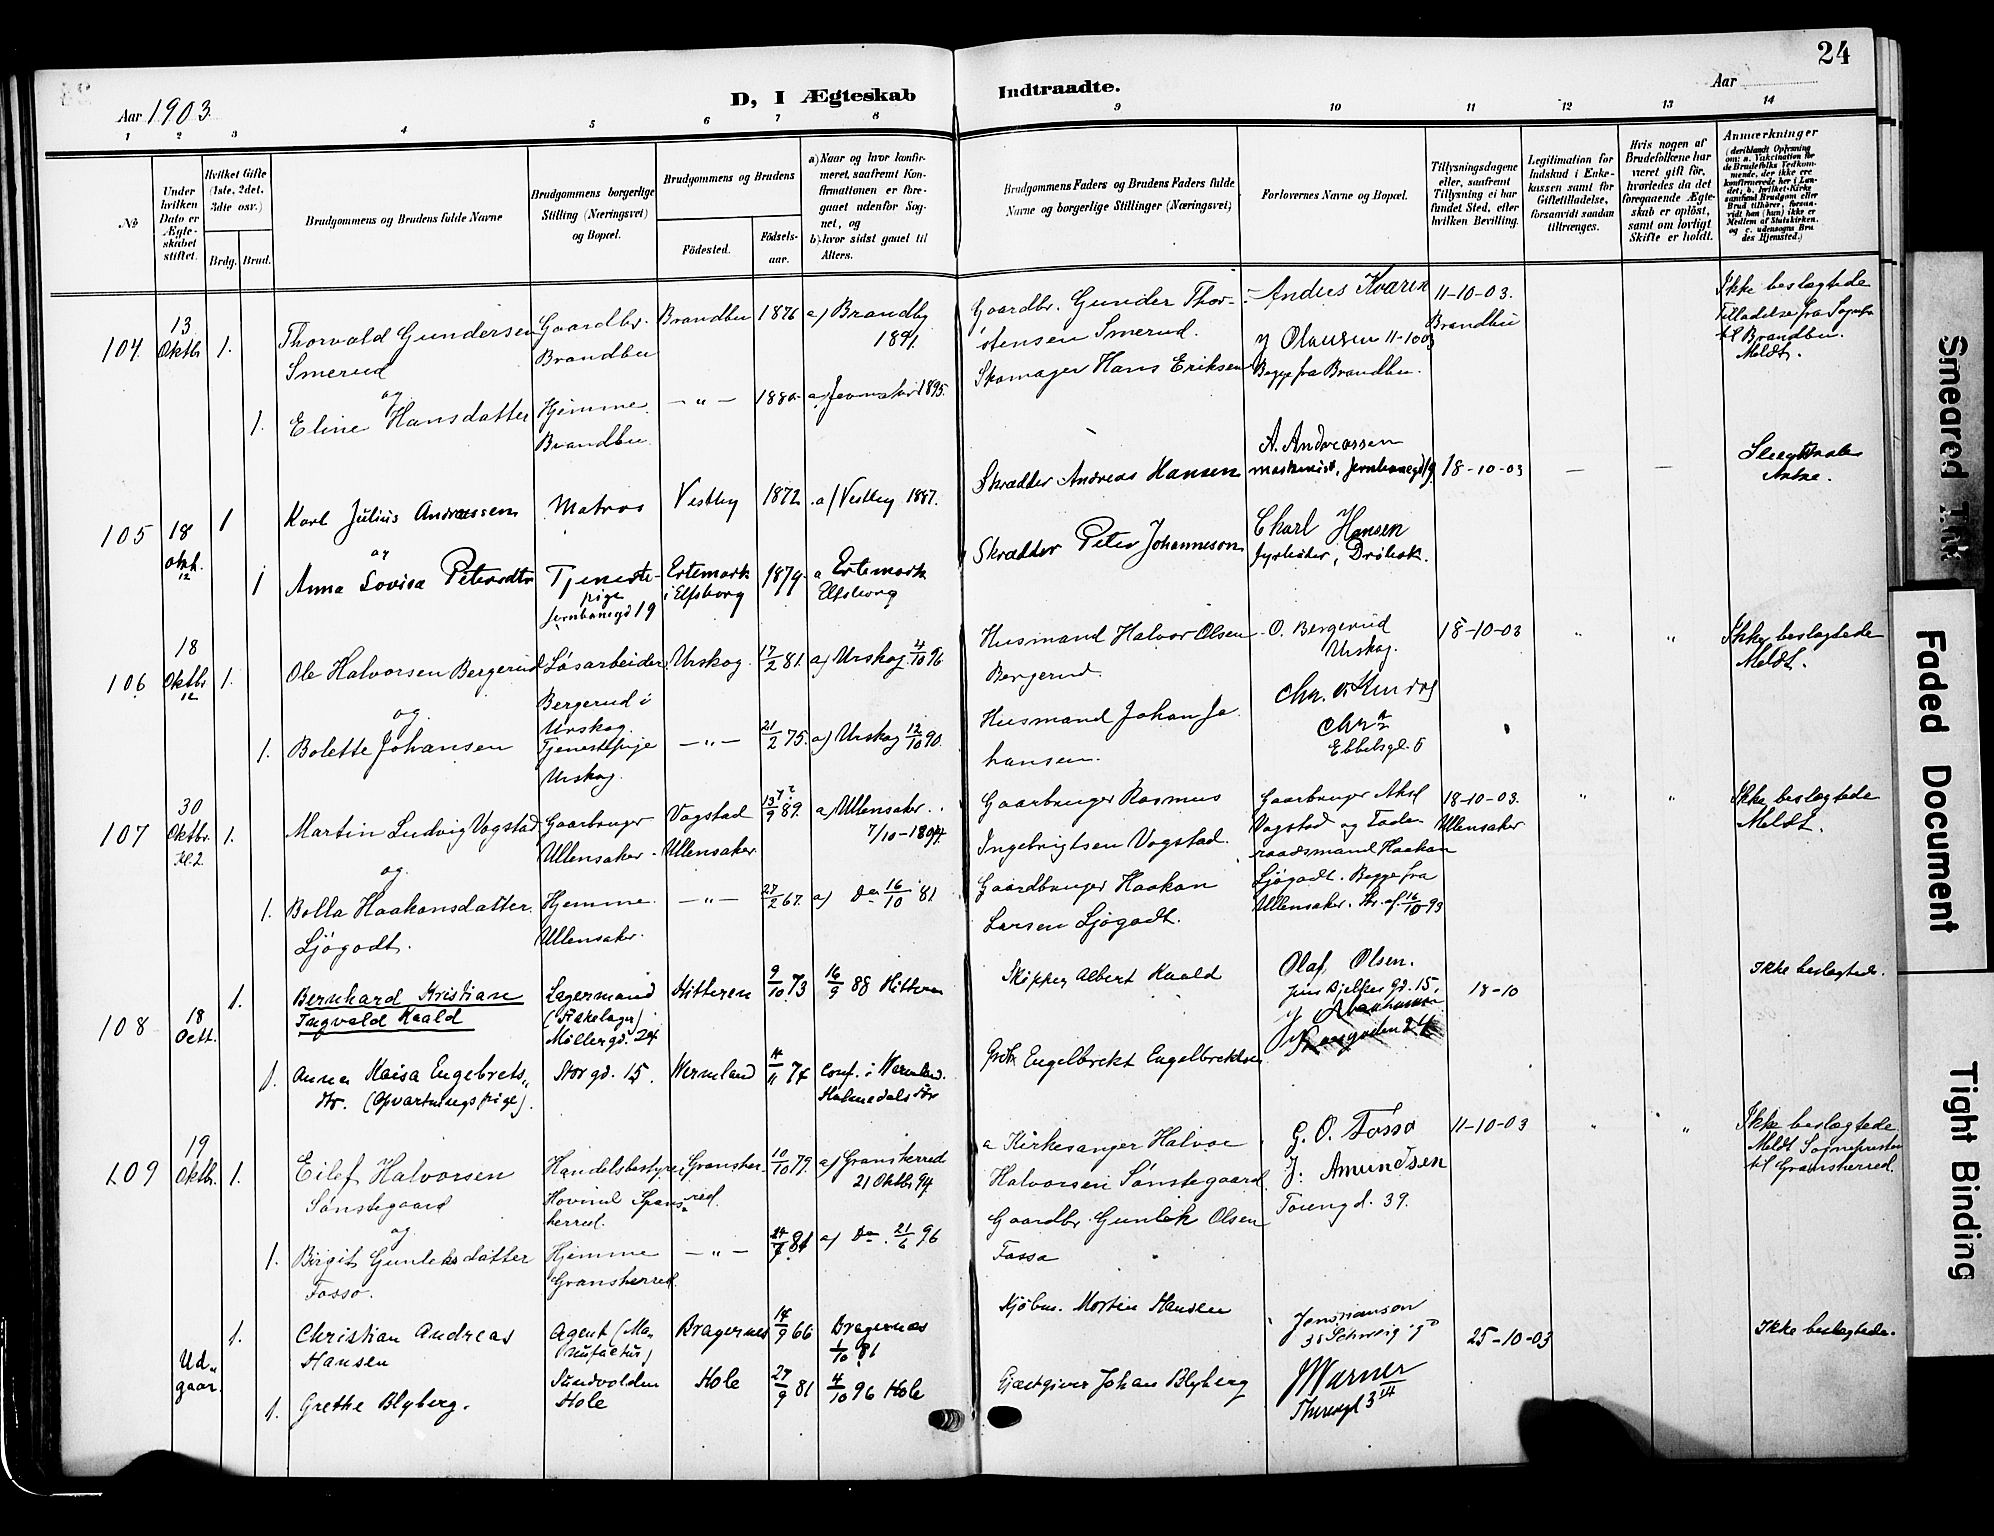 24
Aar 1903.
D, I Ægteskab Indtraadte.
Aar
1 2 3 4 5 6 7 8 9 10 11 12 13 14
No
Under hvilken Dato er Ægteskabet stiftet.
Hvilket Gifte (1ste, 2det, 3dte osv.)
Brdg. Brud.
Brudgommens og Brudens fulde Navne
Brudgommens borgerlige Stilling (Næringsvei) og Bopæl.
Brudgommens og Brudens
Födested.
Födsels-aar.
a) Naar og hvor konfirmeret, saafremt Konfirmationen er foregaaet udenfor Sognet, og
b) hvor sidst gaaet til Alters.
Brudgommens Faders og Brudens Faders fulde Navne og borgerlige Stillinger (Næringsvei)
Forlovernes Navne og Bopæl.
Tillysningsdagene eller, saafremt Tillysning ei har fundet Sted, efter hvilken Bevilling.
Legitimation for Indskud i Enkekassen samt for Giftetilladelse, forsaavidt saadan tiltrænges.
Hvis nogen af Brudefolkene har været gift før, hvorledes da det foregaaende Ægteskab er oplöst, samt om lovligt Skifte er holdt.
Anmærkninger
104. 13 Oktbr 1.
Thorvald Gundersen Smerud
Gaardbr. Brandbu
Brandbu 1876
a) Brandby 1891
Gaardbr. Gunder Thorstensen Smerud.
Anders Kvaren
11-10-03. Brandbu
Ikke beslægtede
til Brandbu.
Meldt.
og
1. Eline Hansdatter
Hjemme. Brandbu
- " - 1880.
a) Jevnaker 1895.
Skomager Hans Eriksen
Olausen 11-10-03
Begge fra Brandbu.
105 18 okt. 12 1
Karl Julius Andreassen
Matros
Vestby 1872
a) Vestby 1887.
Skrædder Andreas Hansen
A. Andreassen
maskinist, Jernbanegd 19
18-10-03 — —
og
1 Anna Lovisa Petersdtr
Tjenestepige Jernbanegd 19
Ertemark i Elfsborg 1879.
a Ertemark Elfsborg
Skrædder Peter Johanneson
Charl Hansen
Drøbak.
106 18 Oktbr 12 1.
Ole Halvorsen Bergerud
Løsarbeider, Bergerud i Urskog.
Urskog. 17/2 81.
a) Urskog 4/10 96
Husmand Halvor Olsen Bergerud.
O. Bergerud Urskog.
18-10-03 " "
Ikke beslægtede
Meldt.
og
1. Bolette Johansen
Tjenestepige Urskog.
- " - 21/2 75.
a) Urskog 12/10 90.
Husmand Johan Johansen.
Ebbelsgd. 5
107 30 Oktbr. Kl. 2 1.
Martin Ludvig Vogstad
Gaarbruger Ullensaker.
Vogstad Ullensaker
13/9 89.
a) Ullensaker. 7/10-1894.
Gaarbruger Rasmus Ingebrigtsen Vogstad.
Gaarbruger Aksel Vogstad og
Haakan Ljøgodt. Begge fra Ullensaker.
18-10-03. Ullensaker " "
Ikke beslægtede
Meldt.
og
1. Bolla Haakonsdatter Ljøgodt.
Hjemme. Ullensaker.
- " - 27/2 67.
a) Do 16/10 81
Gaardbruger Haakan Larsen Ljøgodt.
108 18 Octt. 1.
Bernhard Kristian Ingvald Kaald
Lagermand
Møllergd. 24
Hitteren 9/10 73
16/9 88 Hitteren
Skipper Albert Kaald
Olaf Olsen.
Jens Bjelkes gd. 15.
18-10
Ikke beslægtede.
1. Anna Kaisa Engebretsdtr. (Opvartningspige).
Storgd. 15.
Wermland 11 74
Conf. i Wermland.
Engelbrekt Engelbrektsen
109 19 Oktbr. 1.
Eilef Halvorsen Sønstegaard
Handelsbestyrer, Hovind Gransherred.
Gransherred. 10/10 79.
a) Gransherred 21 Oktbr 94.
a Kirkesanger Halvor Halvorsen Sønstegaard
G. O. Fosso
J. Amundsen
Toiengd. 39.
11-10-03 " "
Ikke beslægtede
Meldt Sognepresten til Gransherred.
og
1. Birgit Gunleksdatter Fosso.
Hjemme Gransherred.
- " - 81
a) Do. 21/6 96
Gaardbr. Gunlek Olsen Fosso
Udgaar. 1.
Christian Andreas Hansen
Agent (Manufactur)
Bragernes 14/9 66
Bragernæs 1/10 81
Kjøbm. Morten Hansen
25-10-03
Ikke beslægtede.
1. Grethe Blyberg.
Sundvolden Hole
Hole 27/9 81
4/10 96 Hole
Gjæstgiver Johan Blyberg
J Warner
Smeared Ink
Faded Document
Tight Binding